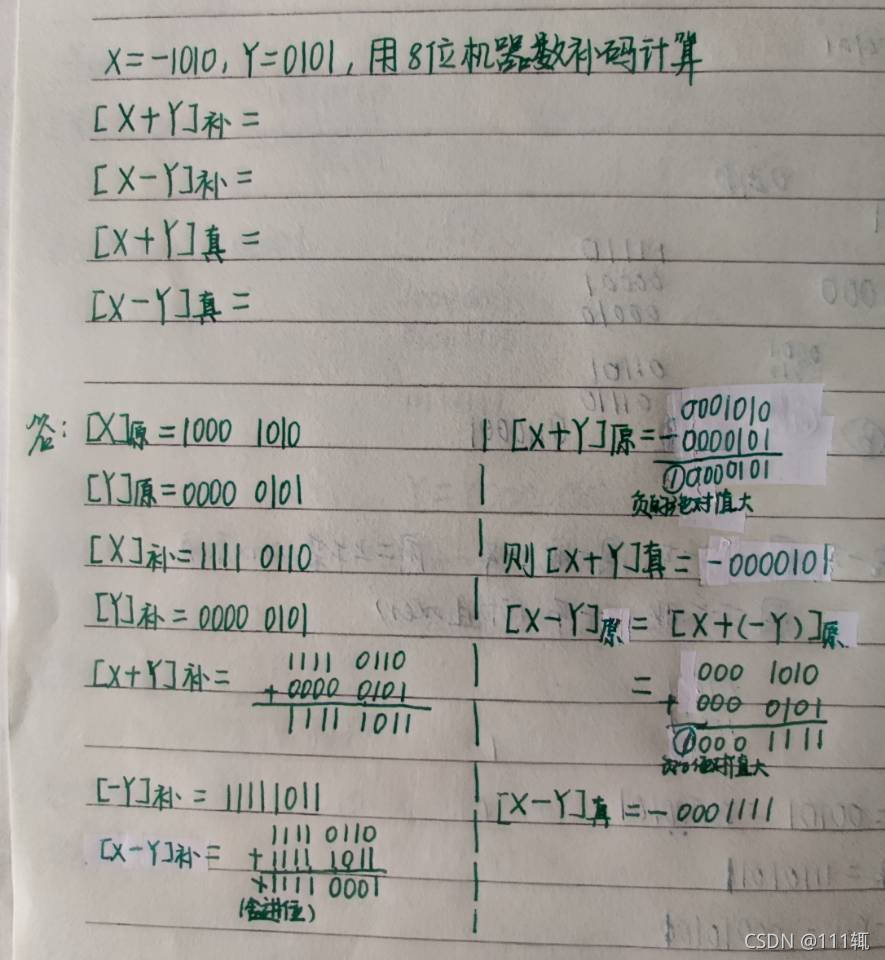 X=-1010, Y=0101, 用8位机器数补码计算
[X+Y]补=
[X-Y]补=
[X+Y]真=
[X-Y]真=
答: [X]原=1000 1010
[Y]原=0000 0101
[X]补=1111 0110
[Y]补=0000 0101
[X+Y]补= 1111 0110
+0000 0101
1111 1011
[-Y]补=11111011
[X-Y]补= 1111 0110
+1111 1011
1111 0001
(舍进位)
[X+Y]原= 0001010
-0000101
①0000101
绝对值大
则[X+Y]真=-0000101
[X-Y]原=[X+(-Y)]原
= 000 1010
+ 000 0101
①000 1111
绝对值大
[X-Y]真=-0001111
CSDN @111辄